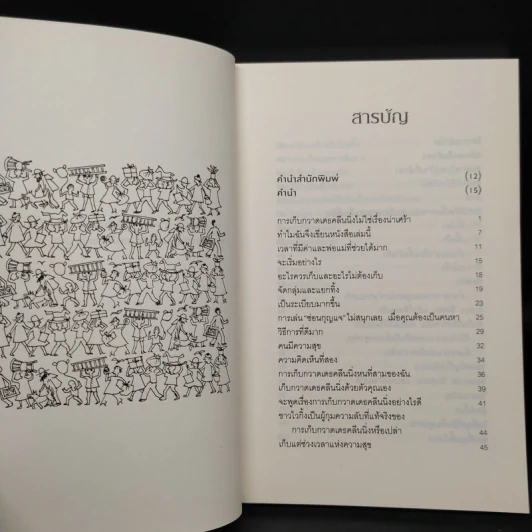 สารบัญ
คำนำสำนักพิมพ์ (12)
คำนำ (15)
การเก็บกวาดเดธคลีนนิ่งไม่ใช่เรื่องน่าเศร้า 1
ทำไมฉันจึงเขียนหนังสือเล่มนี้ 7
เวลาที่มีค่าและพ่อแม่ที่ช่วยได้มาก 11
จะเริ่มอย่างไร 15
อะไรควรเก็บและอะไรไม่ต้องเก็บ 18
จัดกลุ่มและแยกทิ้ง 19
เป็นระเบียบมากขึ้น 23
การเล่น "ซ่อนกุญแจ" ไม่สนุกเลย เมื่อคุณต้องเป็นคนหา 25
วิธีการที่ดีมาก 29
คนมีความสุข 32
ความคิดเห็นที่สอง 34
การเก็บกวาดเดธคลีนนิ่งหนที่สามของฉัน 36
เก็บกวาดเดธคลีนนิ่งด้วยตัวคุณเอง 39
จะพูดเรื่องการเก็บกวาดเดธคลีนนิ่งอย่างไรดี 41
ชาวไวกิ้งเป็นผู้กุมความลับที่แท้จริงของ
การเก็บกวาดเดธคลีนนิ่งหรือเปล่า 44
เก็บแต่ช่วงเวลาแห่งความสุข 45